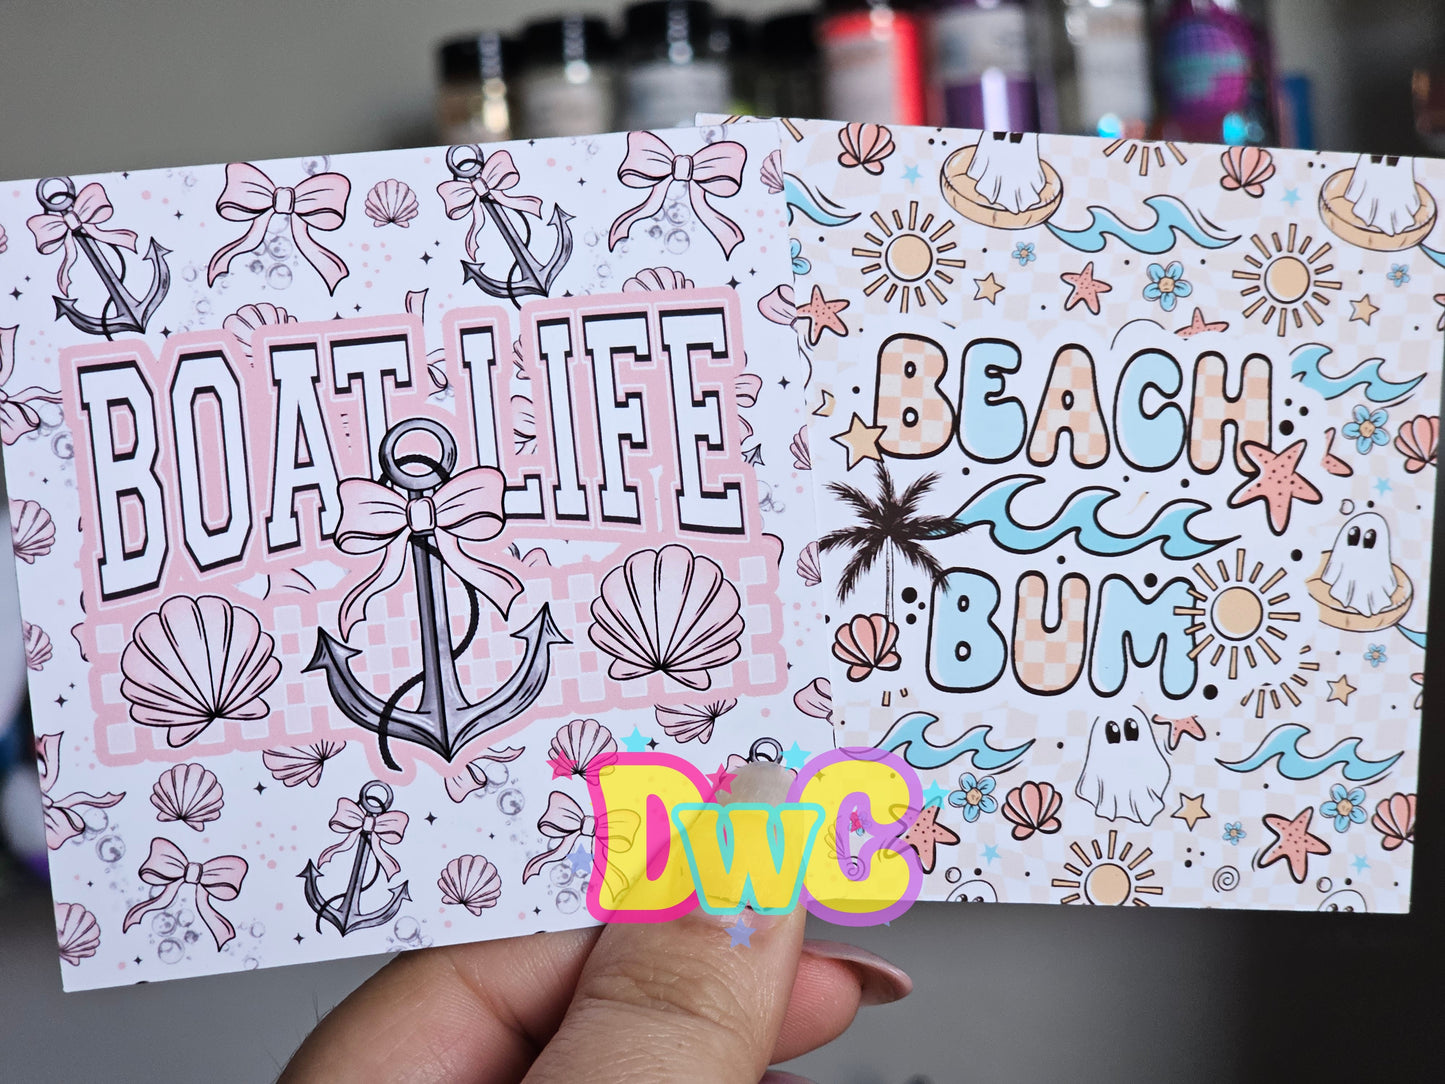 BOAT LIFE
BEACH
BUM
DWC